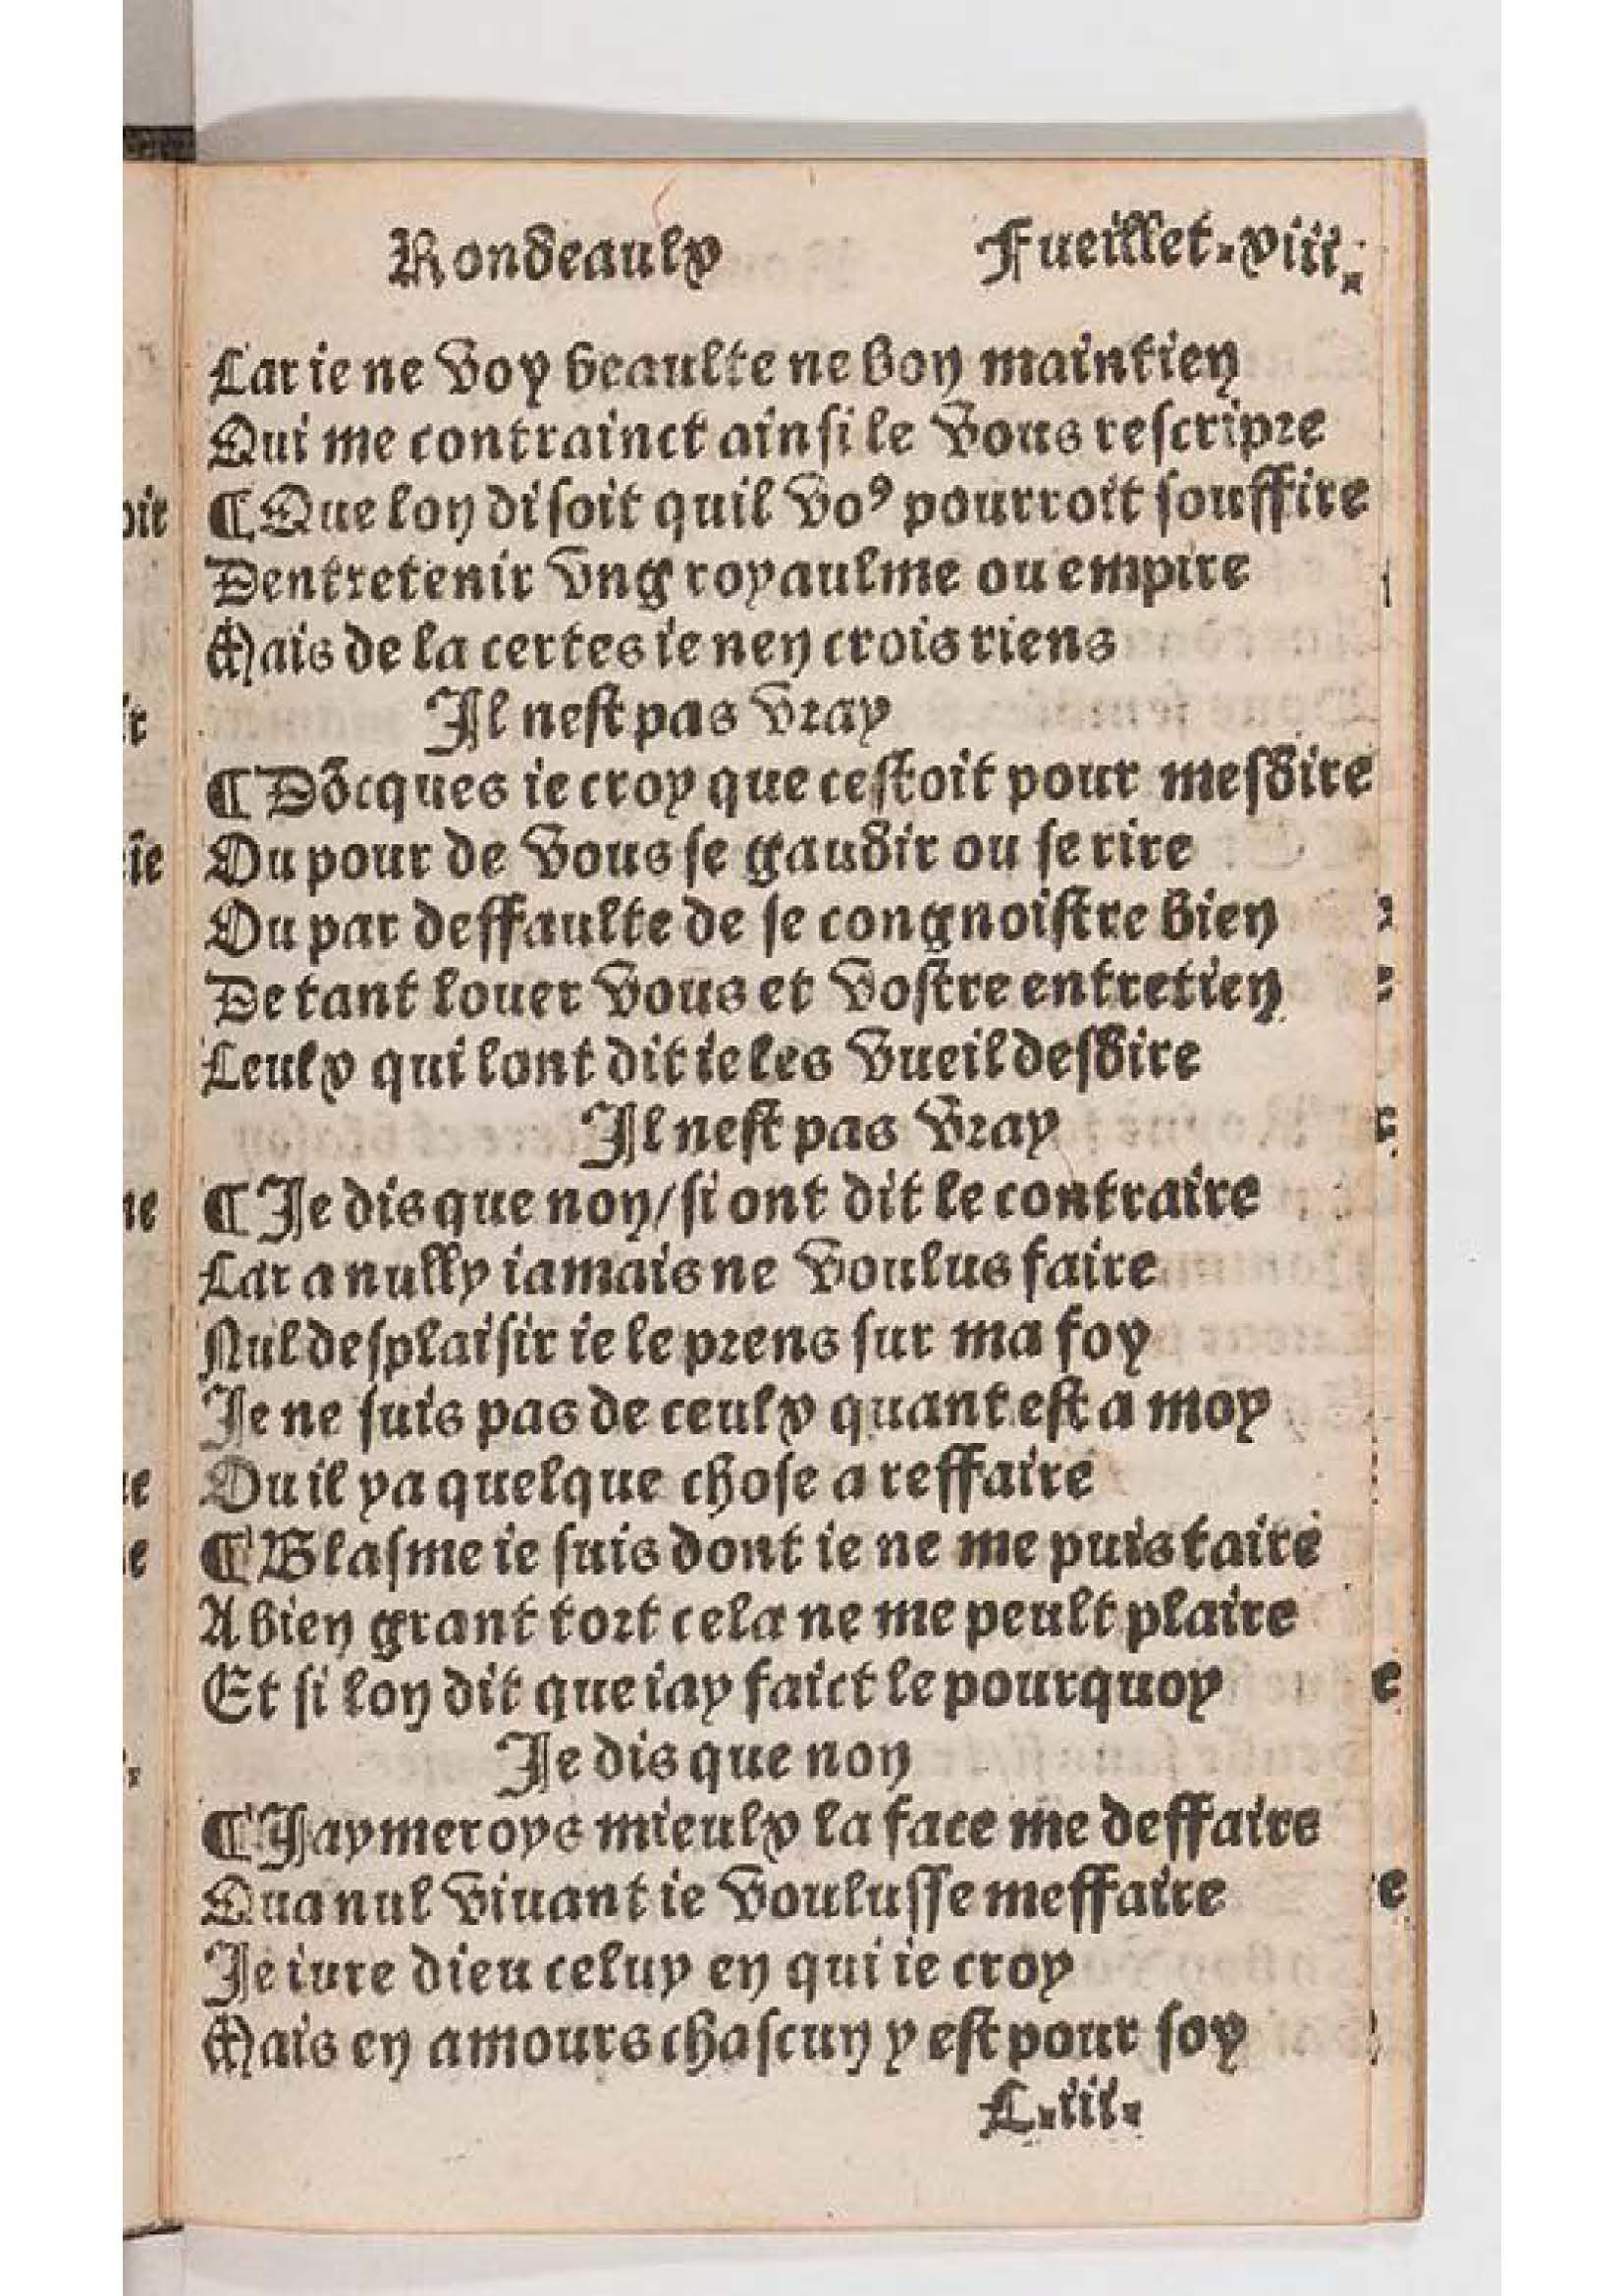 Rondeaulx Fueillet.viii.
Car ie ne voy beaulte ne bon maintien
Qui me contrainct ainsi le vous rescripre
¶Que lon disoit quil voꝰ pourroit souffire
Dentretenir vng royaulme ou empire
Mais de la certes ie nen crois riens
Il nest pas vray
¶Dōcques ie croy que cestoit pour mesdire
Ou pour de vous se gaudir ou se rire
Ou par deffaulte de se congnoistre bien
De tant louer vous et vostre entretien
Ceulx qui lont dit ie les vueil desdire
Il nest pas vray
¶Je dis que non/si ont dit le contraire
Car a nully iamais ne voulus faire
Nul desplaisir ie le prens sur ma foy
Je ne suis pas de ceulx quant est a moy
Ou il ya quelque chose a reffaire
¶Blasme ie suis dont ie ne me puis taire
A bien grant tort cela ne me peult plaire
Et si lon dit que iay faict le pourquoy
Je dis que non
¶Jaymeroys mieulx la face me deffaire
Qua nul viuant ie voulusse meffaire
Je iure dieu celuy en qui ie croy
Mais en amours chascun y est pour soy
C.iii.